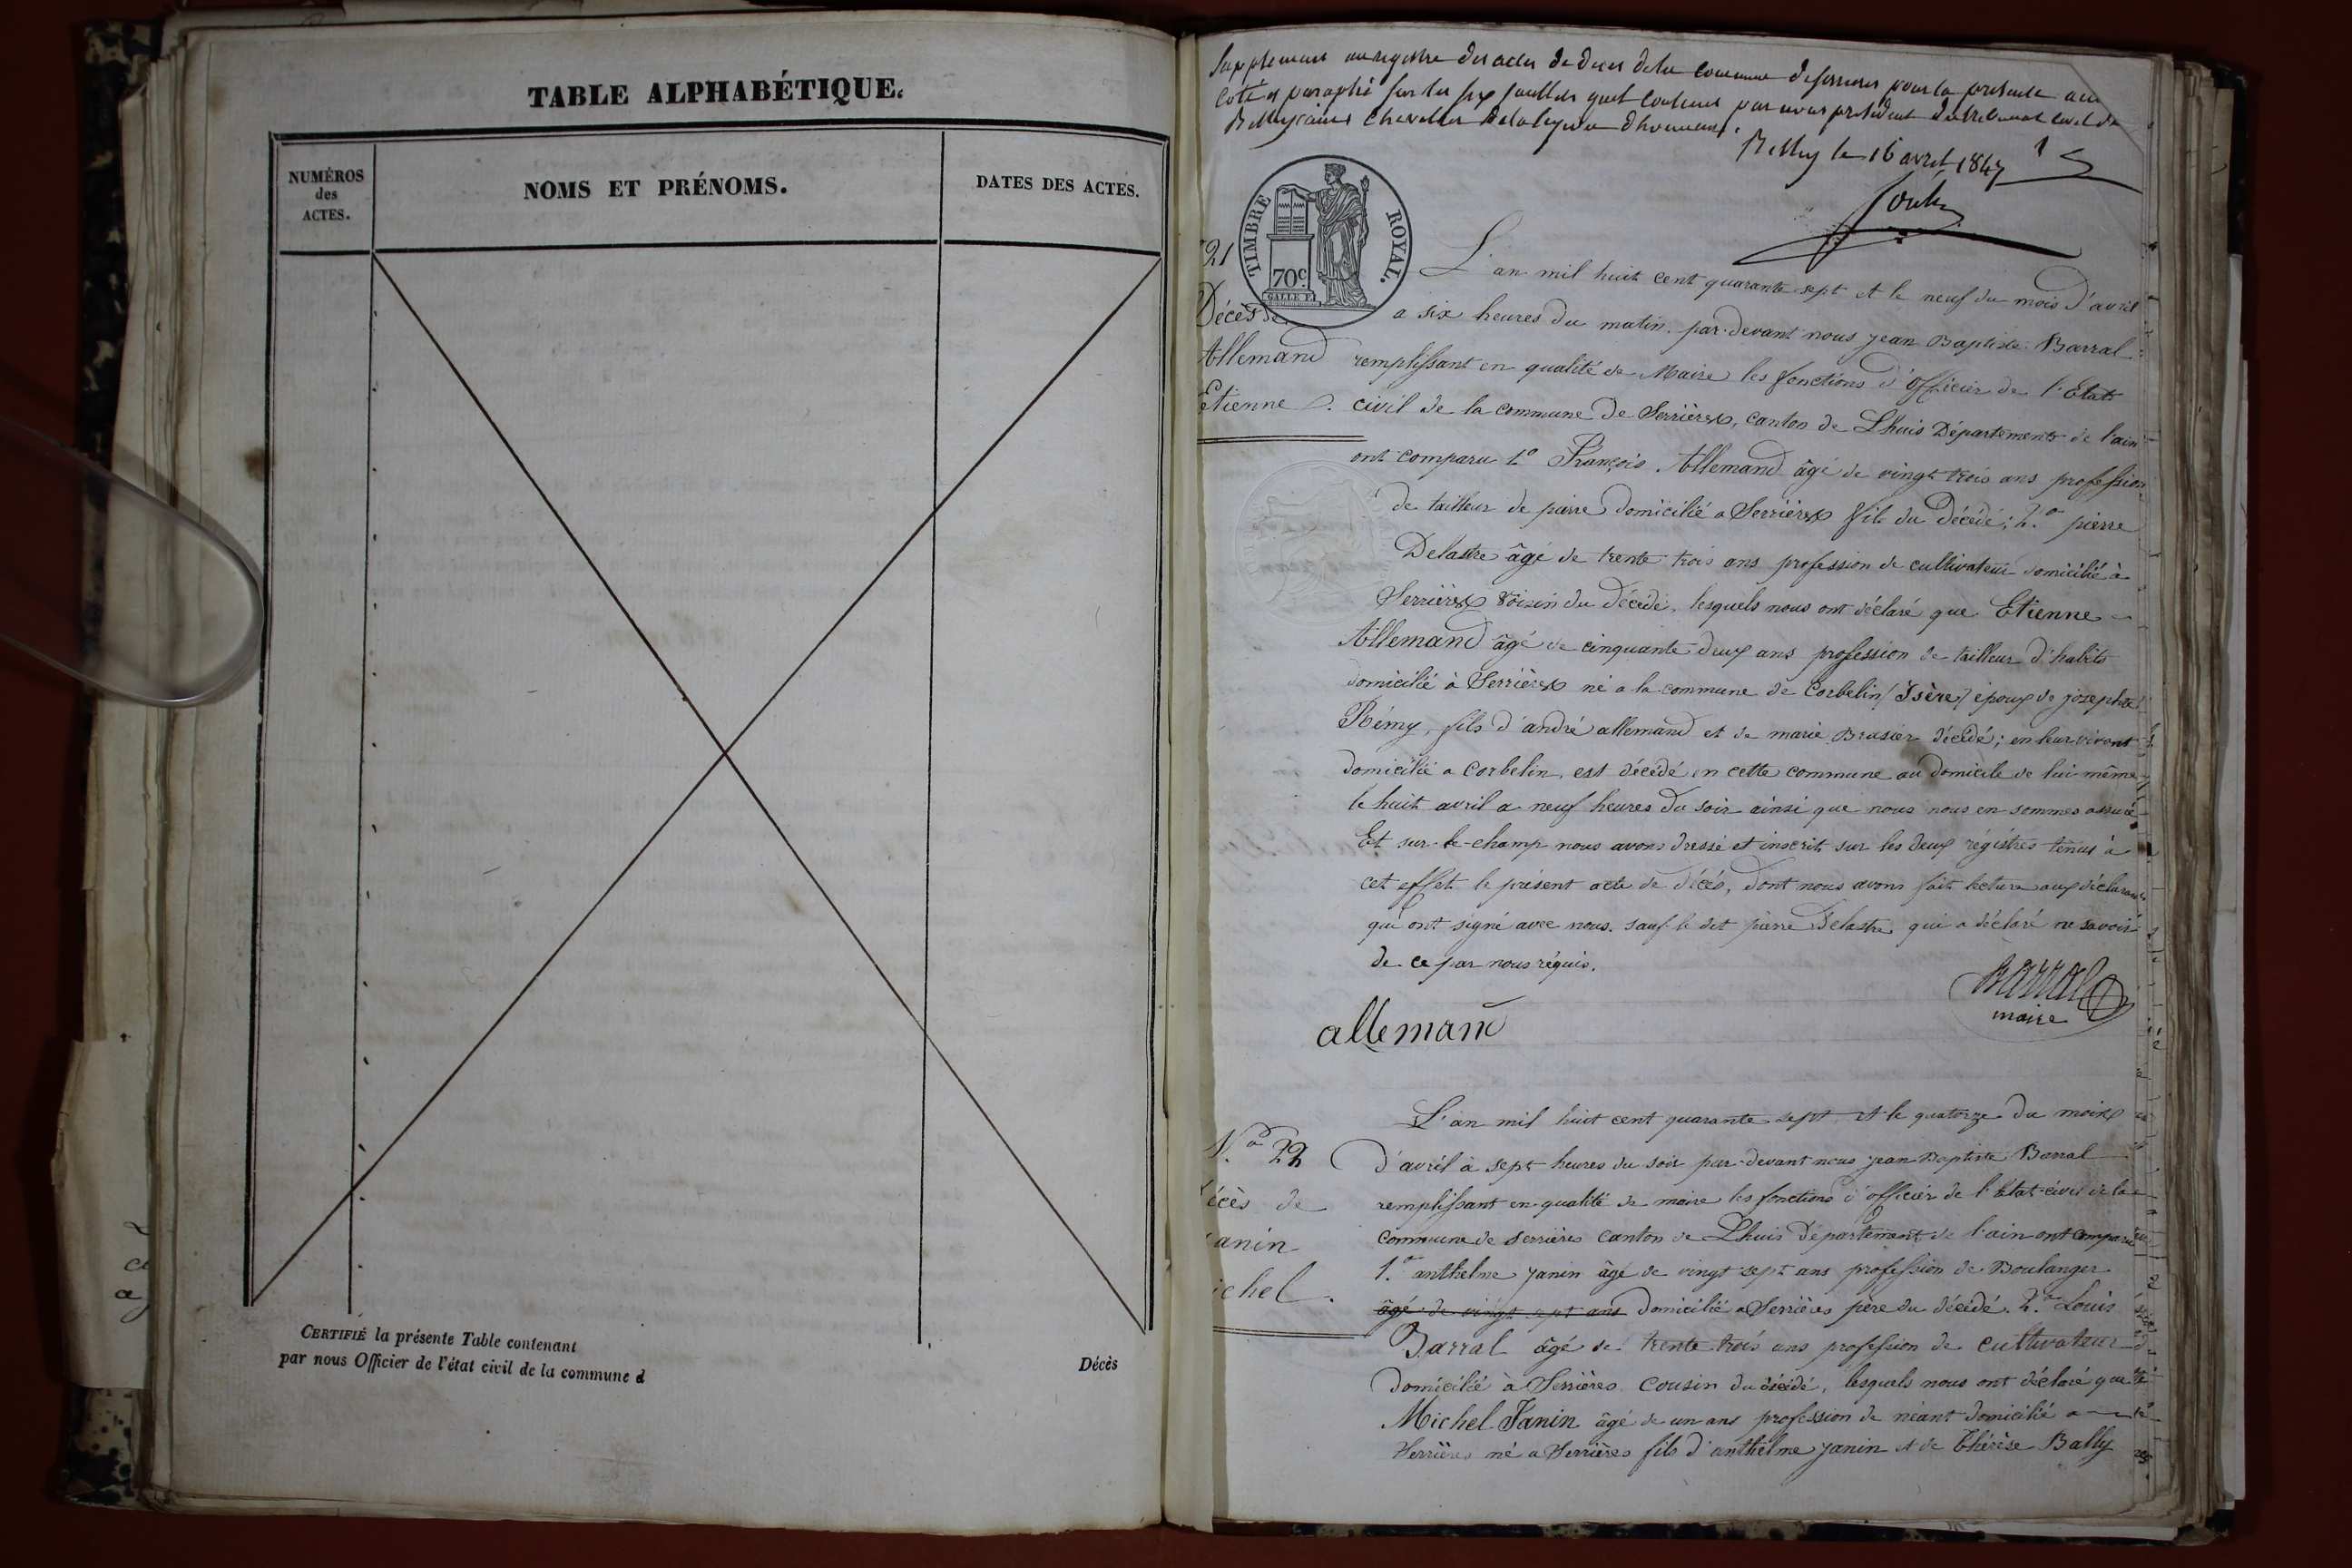 TABLE ALPHABÉTIQUE.
NUMÉROS
des
ACTES.
NOMS ET PRÉNOMS.
DATES DES ACTES.
CERTIFIÉ la présente Table contenant
par nous Officier de l'état civil de la commune d
Décès
Supplement au registre des actes de deces de la commune de serrieres pour la presente
coté et paraphé sur les six feuillets quil contient par nous president du tribunal civil de
Belley chevalier de la legion dhonneur.
Belley le 16 avril 1847
TIMBRE ROYAL.
70c
21
Décès de
Allemand
Etienne
L'an mil huit cent quarante sept et le neuf du mois d'avril
a six heures du matin. par-devant nous jean Baptiste Barral
remplissant en qualité de Maire les fonctions d'officier de l'Etat
civil de la commune de Serrières, canton de Lhuis Département de l'ain
ont comparu 1o François Allemand âgé de vingt trois ans profession
de tailleur de pierre domicilié a Serrières fils du Décédé; 2.o pierre
Delastre âgé de trente trois ans profession de cultivateur domicilié à
Serrières voisin du décédé, lesquels nous ont déclaré que Etienne
Allemand âgé de cinquante deux ans profession de tailleur d'habits
domicilié à Serrières né a la commune de Corbelin (Isère) époux de josephte
Rémy, fils d'andré allemand et de marie Brasier décédé; en leur vivant
domicilié a corbelin, est décédé en cette commune au domicile de lui-même
le huit avril a neuf heures du soir ainsi que nous nous en sommes assuré
Et sur-le-champ nous avons dressé et inscrit sur les deux régistres tenus à
cet effet le présent acte de décés, dont nous avons fait lecture aux déclarants
qui ont signé avec nous. sauf le dit pierre Delastre qui a déclaré ne savoir
de ce par nous réquis.
Barral
maire
allemand
N.o 22
écès de
anin
ichel.
L'an mil huit cent quarante sept et le quatorze du mois
d'avril à sept heures du soir par-devant nous jean Baptiste Barral
remplissant en qualité de maire les fonctions d'officier de l'Etat-civil de la
commune de serrières canton de Lhuis Département de l'ain ont comparu
1.o anthelme janin âgé de vingt sept ans profession de Boulanger
âgé de vingt sept ans domicilié a Serrières père du décédé. 2.o Louis
Barral âgé de trente trois ans profession de cultivateur
domicilié à Serrières cousin du décédé, lesquels nous ont déclaré que
Michel Janin âgé de un ans profession de néant domicilié a
Serrières né a Serrières fils d'anthelme janin et de thérèse Bally